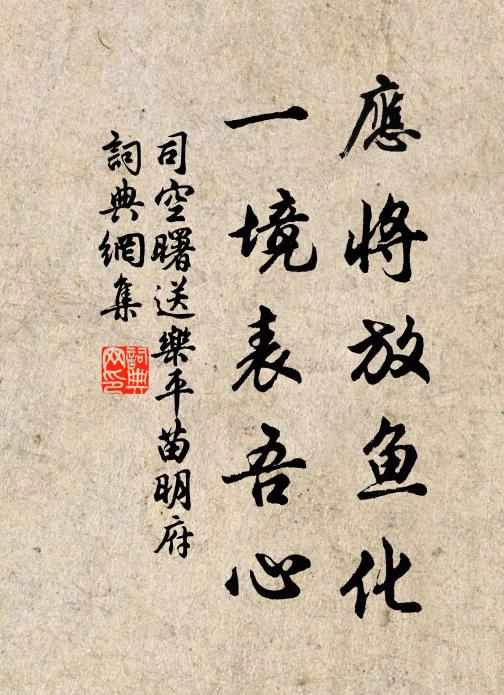 應將放鱼化
一境表吾心
司空曙送樂平苗明府
詞典網集
詞典網印